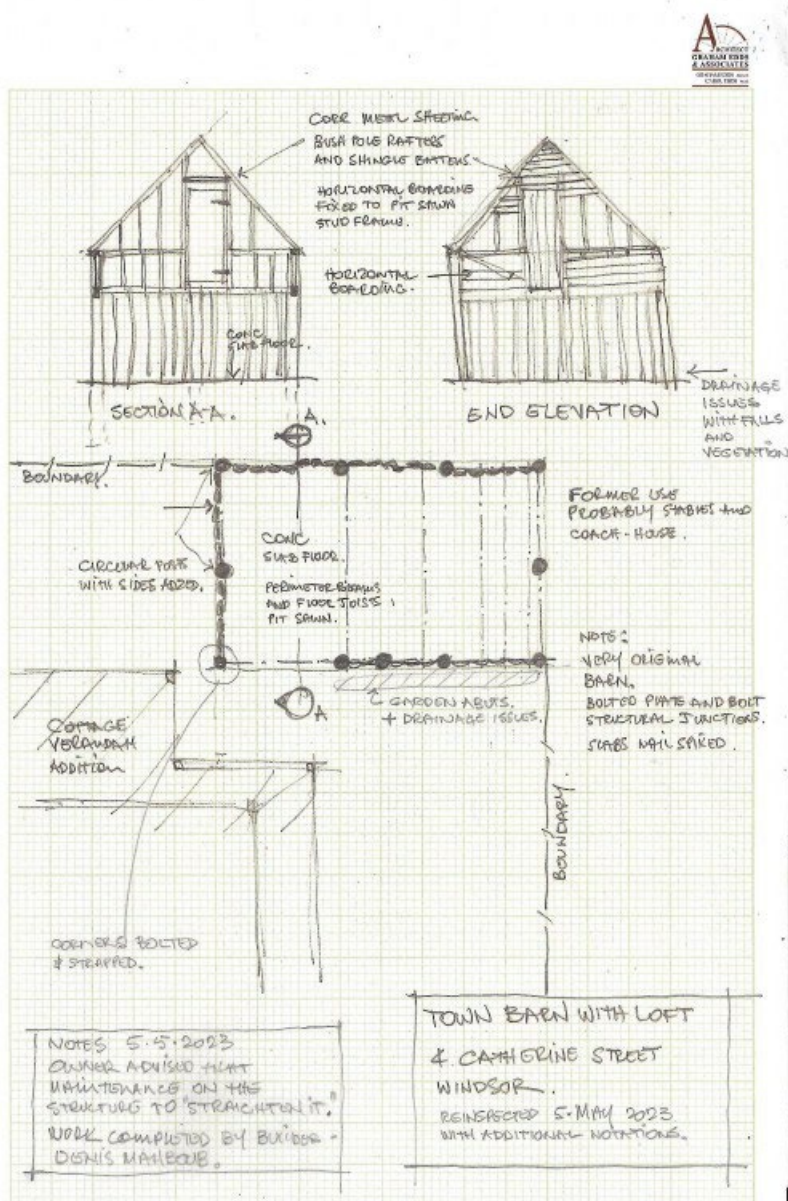 ARCHITECT
GRAHAM EDDS
& ASSOCIATES
CORR METAL SHEETING
BUSH POLE RAFTERS
AND SHINGLE BATTENS.
HORIZONTAL BOARDING
FIXED TO PIT SAWN
STUD FRAME.
HORIZONTAL
BOARDING.
CONC
SLAB FLOOR.
SECTION A-A.
END ELEVATION
DRAINAGE
ISSUES
WITH FALLS
AND
VEGETATION
A.
BOUNDARY.
CIRCULAR POSTS
WITH SIDES ADZED.
CONC
SLAB FLOOR.
PERIMETER BEAMS
AND FLOOR JOISTS
PIT SAWN.
FORMER USE
PROBABLY STABLES AND
COACH-HOUSE.
NOTE:
VERY ORIGINAL
BARN.
BOLTED PLATE AND BOLT
STRUCTURAL JUNCTIONS.
SLABS NAIL SPIKED.
A
GARDEN ABUTS.
+ DRAINAGE ISSUES.
COTTAGE
VERANDAH
ADDITION
BOUNDARY.
CORNERS BOLTED
& STRAPPED.
NOTES 5.5.2023
OWNER ADVISED THAT
MAINTENANCE ON THE
STRUCTURE TO "STRAIGHTEN IT."
WORK COMPLETED BY BUILDER -
DENIS MAHBOUB.
TOWN BARN WITH LOFT
4. CATHERINE STREET
WINDSOR.
REINSPECTED 5. MAY 2023
WITH ADDITIONAL NOTATIONS.